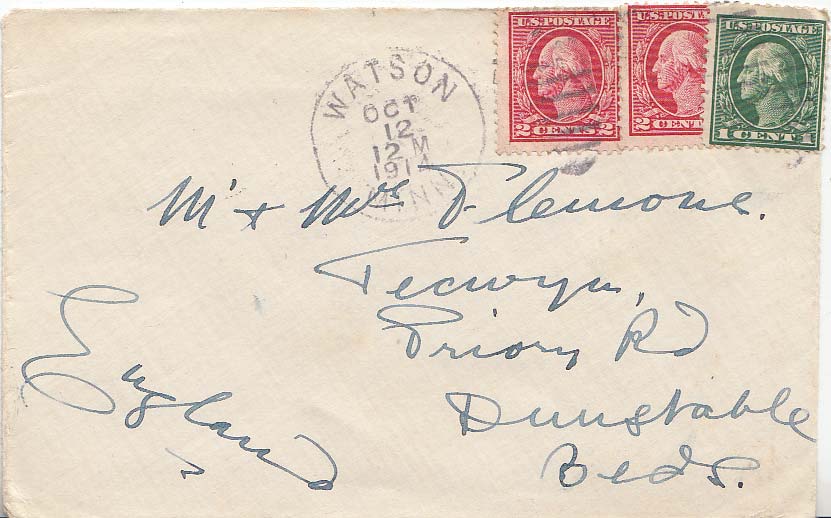 U.S. POSTAGE
2 CENTS 2
U.S. POSTA
2 CENT
U.S. POSTAGE
1 CENT 1
WATSON
OCT
12
12 M
191
MINN
Mr + Mrs F. Lemone.
Tecwyn,
Priory Rd
Dunstable
Beds.
England